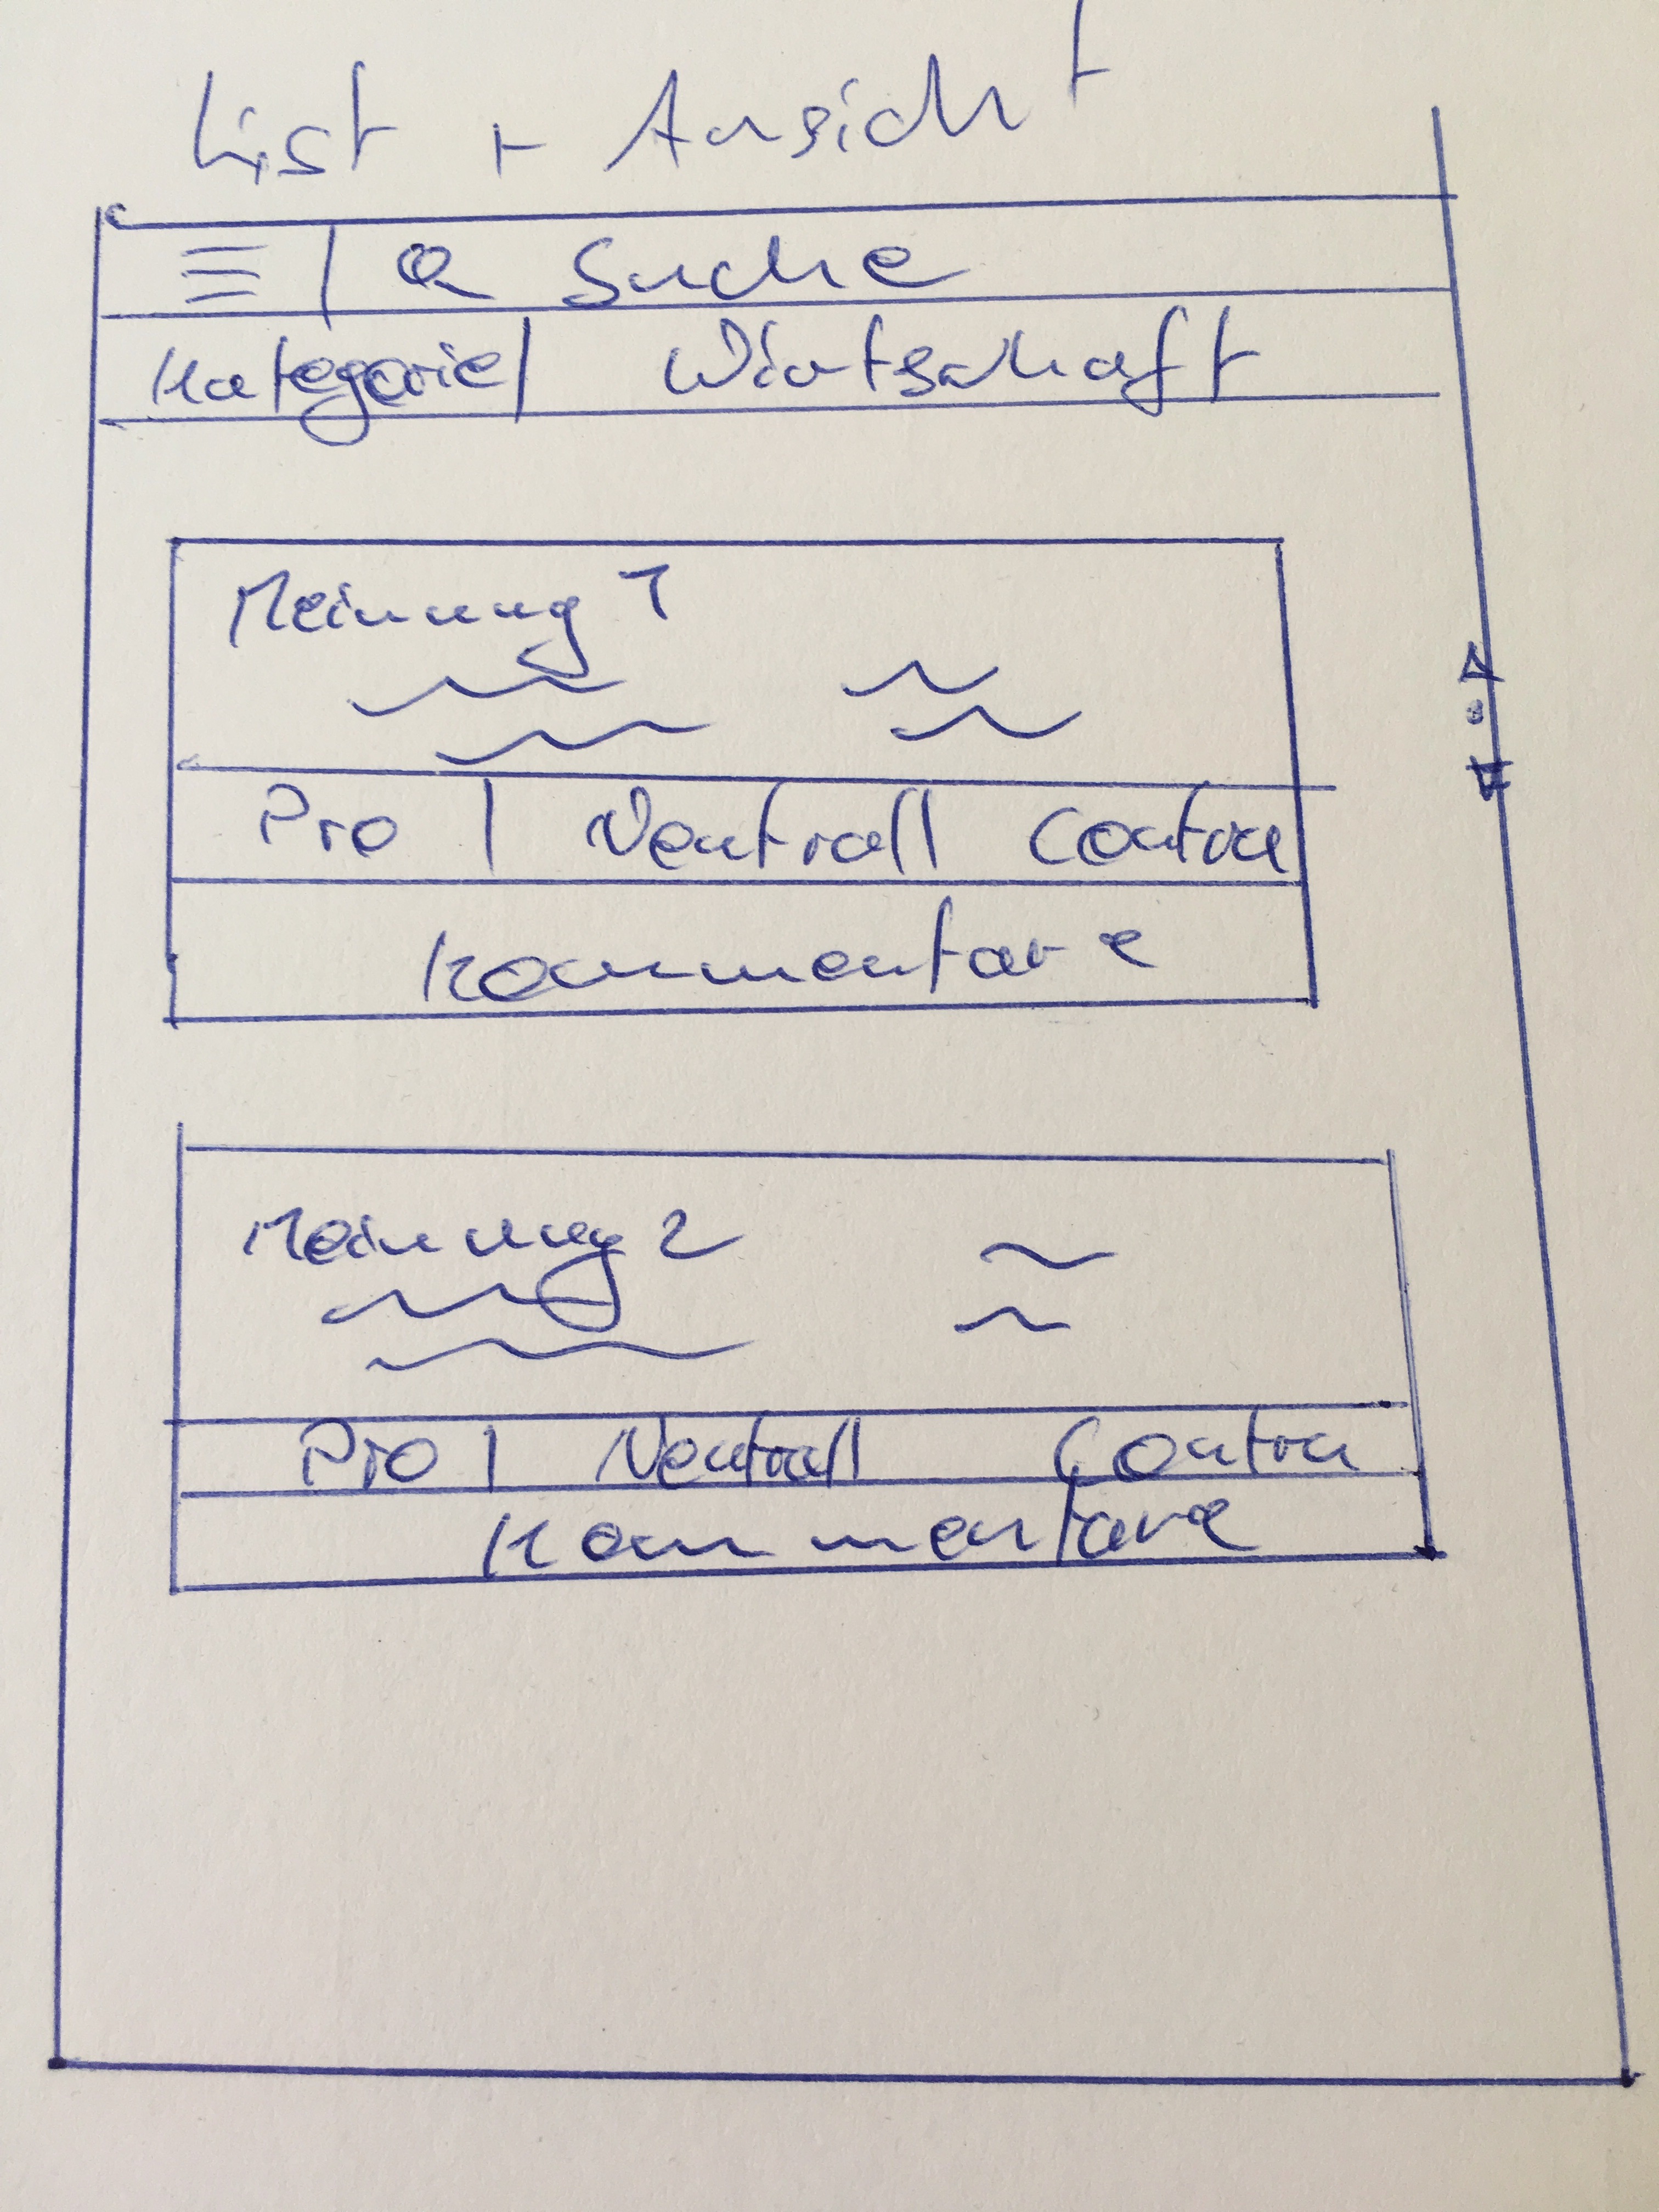 List + Ansicht
Suche
Kategorie | Wirtschaft
Meinung 1
Pro | Neutral | Contra
Kommentare
Meinung 2
Pro | Neutral | Contra
Kommentare